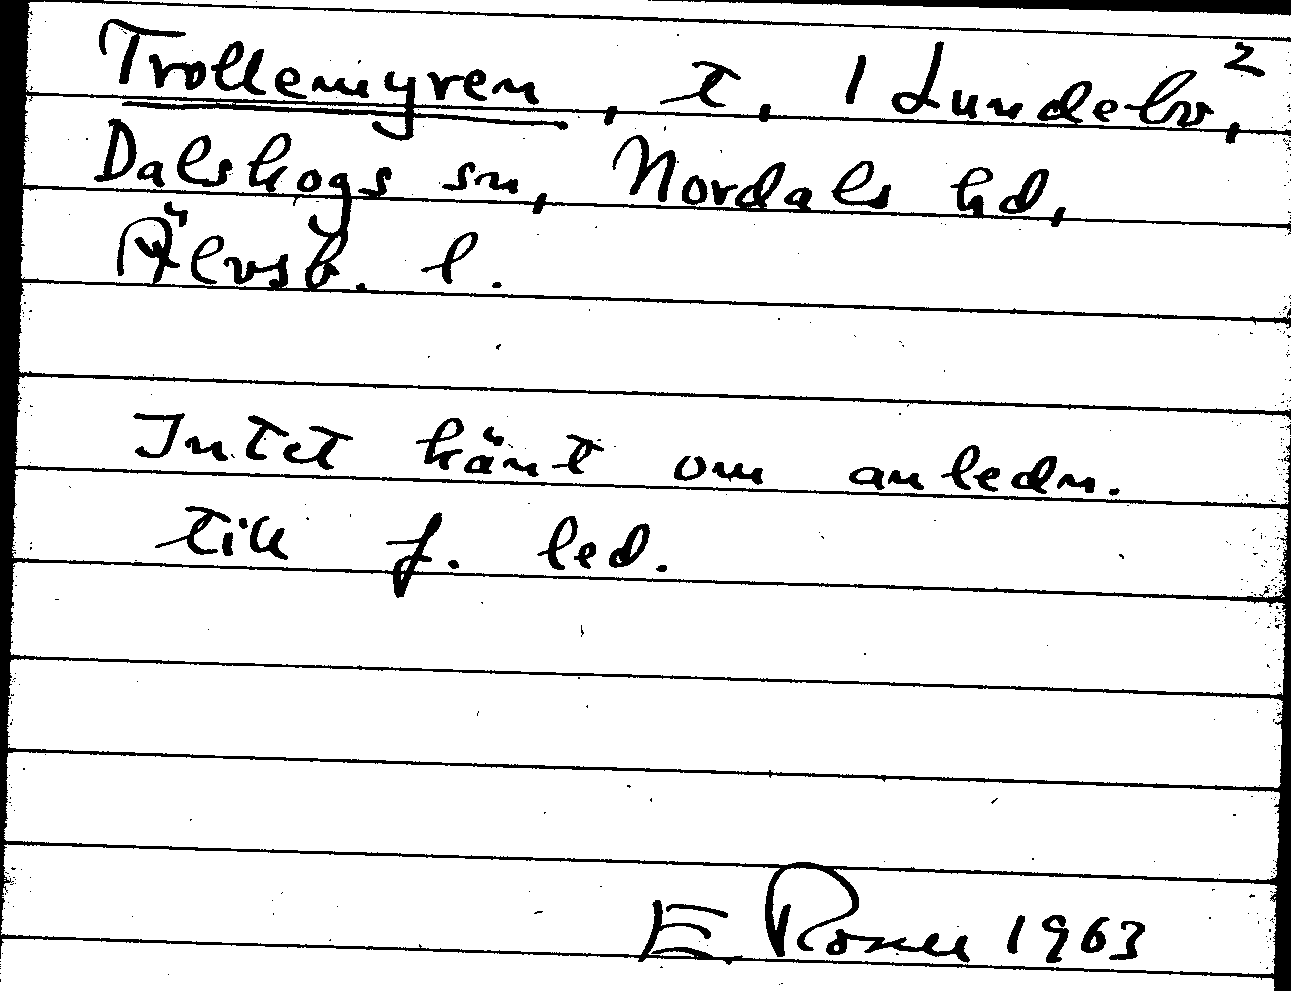 Trollemyren, t. 1 Lundebv,²
Dalskogs sn, Nordals hd,
Älvsb. l.
Intet känt om anledn.
till f. led.
E. Rosell 1963